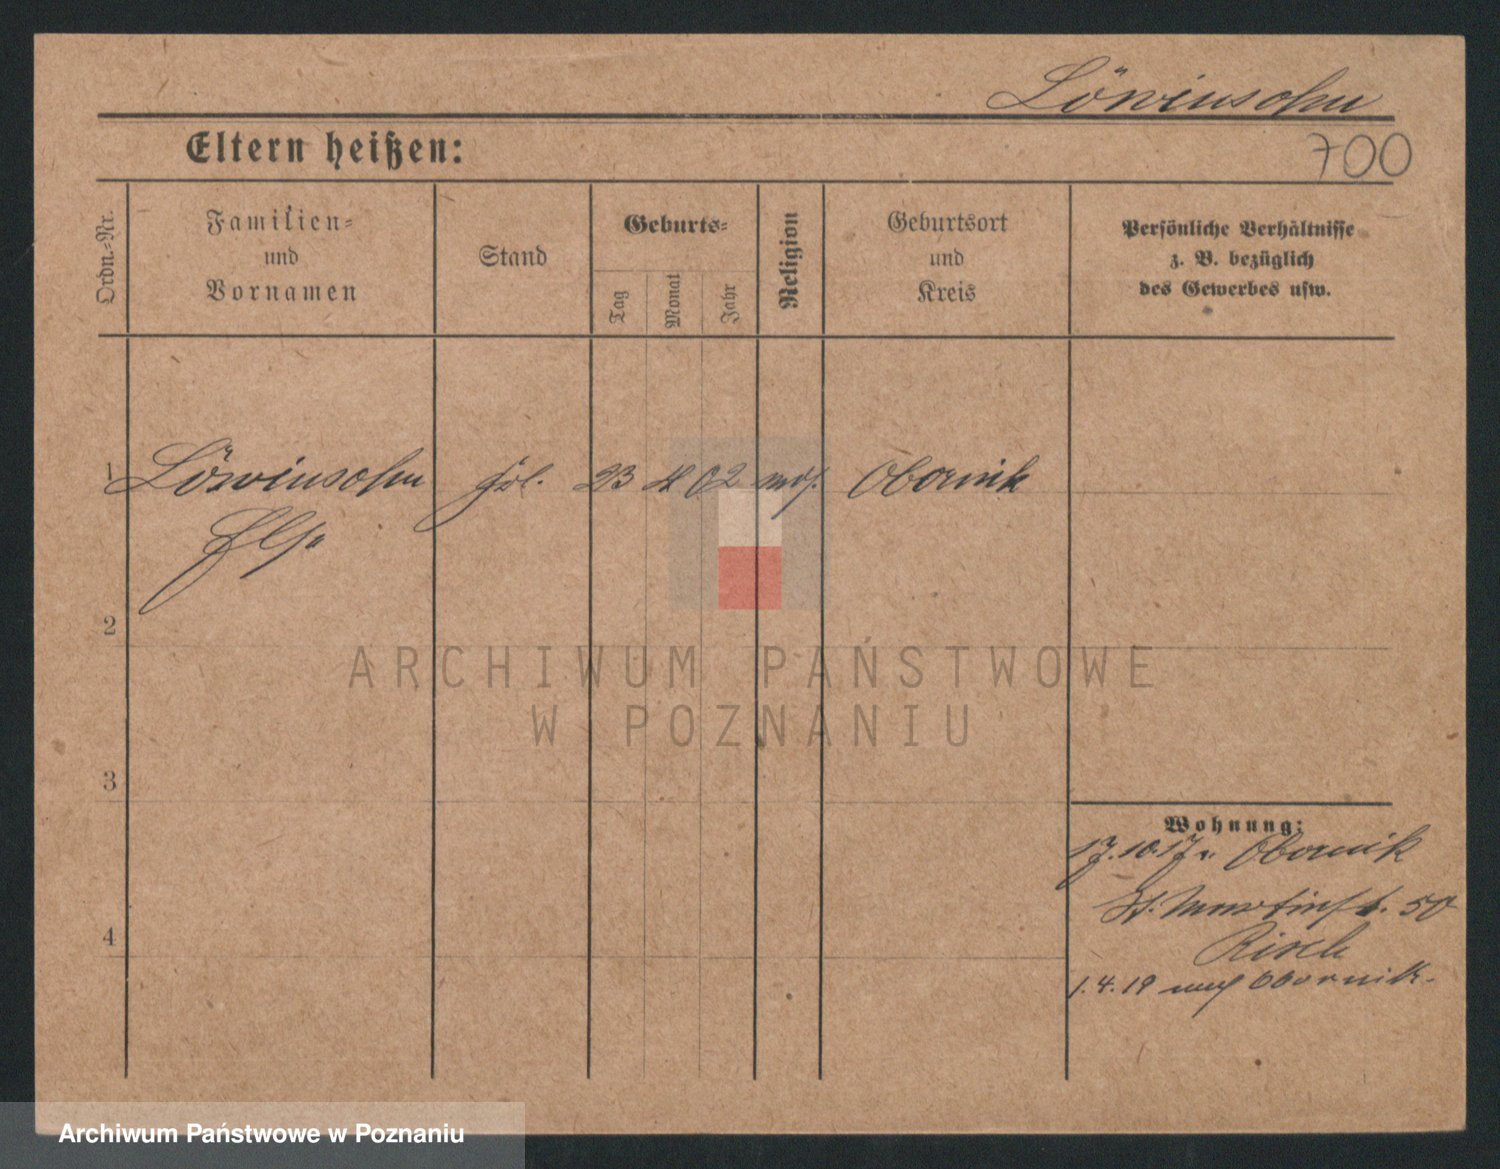 Löwinsohn
700
Eltern heißen:
Ordn.-Nr.
Familien-
und
Vornamen
Stand
Geburts-
Tag
Monat
Jahr
Religion
Geburtsort
und
Kreis
Persönliche Verhältnisse
z. B. bezüglich
des Gewerbes usw.
1 Löwinsohn Frl. 23 02 mos. Obornik
Else
2
ARCHIWUM PAŃSTWOWE
W POZNANIU
3
4
Wohnung:
17.10.17 v. Obornik
St. Martinst. 50
1.4.19 nach Obornik.
Archiwum Państwowe w Poznaniu